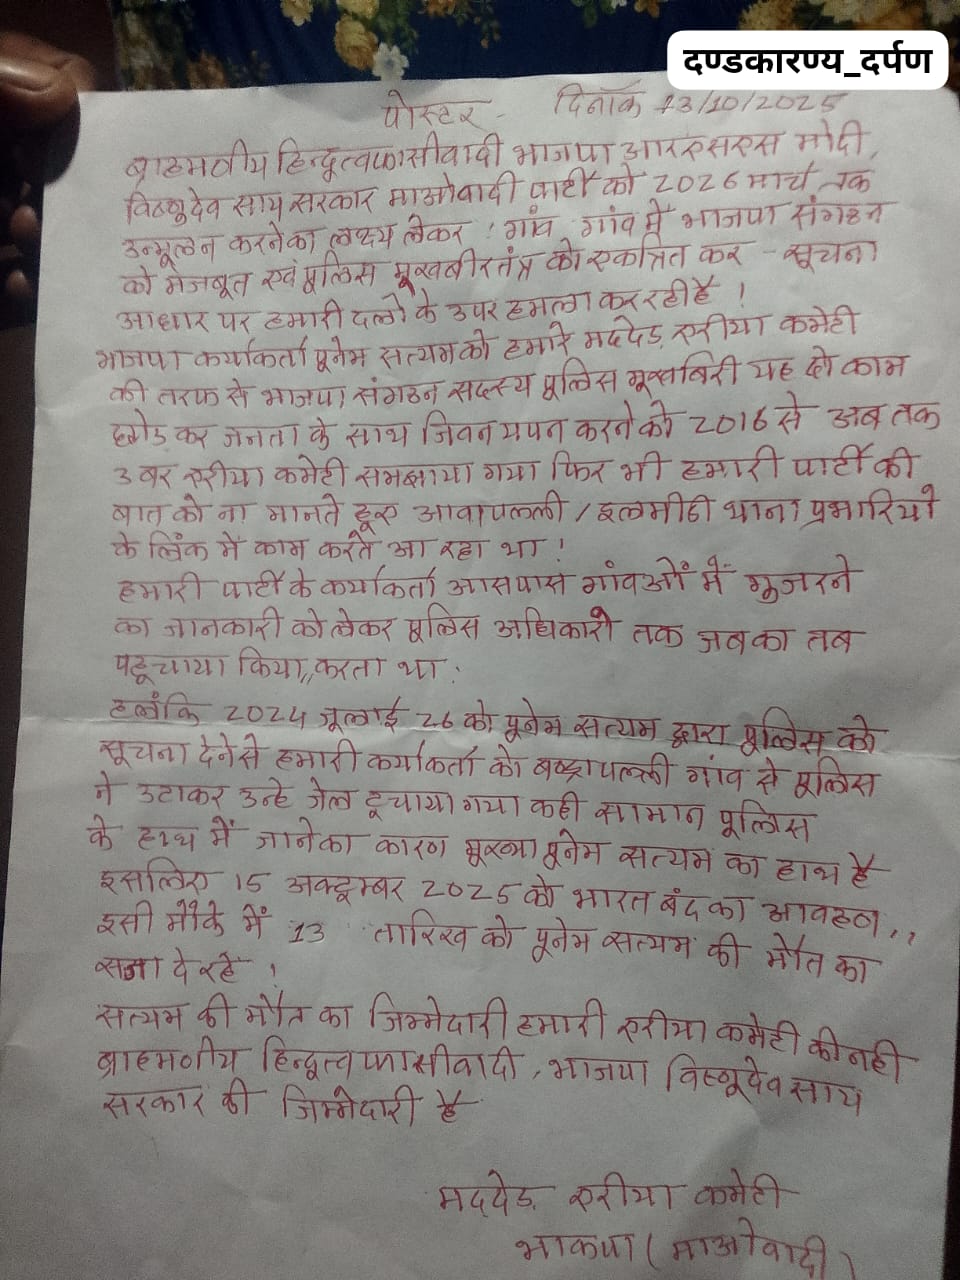 दण्डकारण्य_दर्पण
पोस्टर - दिनाँक 13/10/2025
ब्राहमणीय हिन्दुत्वफासीवादी भाजपा आरएसएस मोदी,
विष्णुदेव साय सरकार माओवादी पार्टी को 2026 मार्च तक
उन्मूलन करनेका लक्ष्य लेकर ! गांव गांव में भाजपा संगठन
को मजबूत एवं पुलिस मूखबीरतंत्र को एकत्रित कर - सूचना
आधार पर हमारी दलो के उपर हमला कर रही है !
भाजपा कर्याकर्ता पूनेम सत्यम को हमारे मददेड़ एरीया कमेटी
की तरफ से भाजपा संगठन सदस्य पूलिस मूखबिरी यह दो काम
छोड़ कर जनता के साथ जिवन यपन करने को 2016 से अब तक
3 बर एरीया कमेटी समझाया गया फिर भी हमारी पार्टी की
बात को ना मानते हूए आवापल्ली / इलमीडी थाना प्रभारियो
के लिंक में काम करते आ रहा था !
हमारी पार्टी के कर्याकर्ता आसपास गांवओं में गुजरने
का जानकारी को लेकर पूलिस अधिकारी तक जबका तब
पहूचाया किया,,करता था .
हलंकि 2024 जूलाई 26 को पूनेम सत्यम द्वारा पूलिस को
सूचना देने से हमारी कर्याकर्ता को पूलिस गांव से
ने उटाकर उन्हे जेल दूचाया गया कही सामान पूलिस
के हाथ में जानेका कारण मूख्या पूनेम सत्यम का हाथ है
इसलिए 15 अक्टूम्बर 2025 को भारत बंद का आवहण ,,
इसी मौके में 13 तारिख को पूनेम सत्यम की मौत का
सजा दे रहे !
सत्यम की मौत का जिम्मेदारी हमारी एरीया कमेटी की नही
ब्राहमणीय हिन्दूत्व फासीवादी, भाजपा विष्णूदेव साय
सरकार की जिम्मेदारी है
मददेड़ एरीया कमेटी
भाकपा (माओवादी)